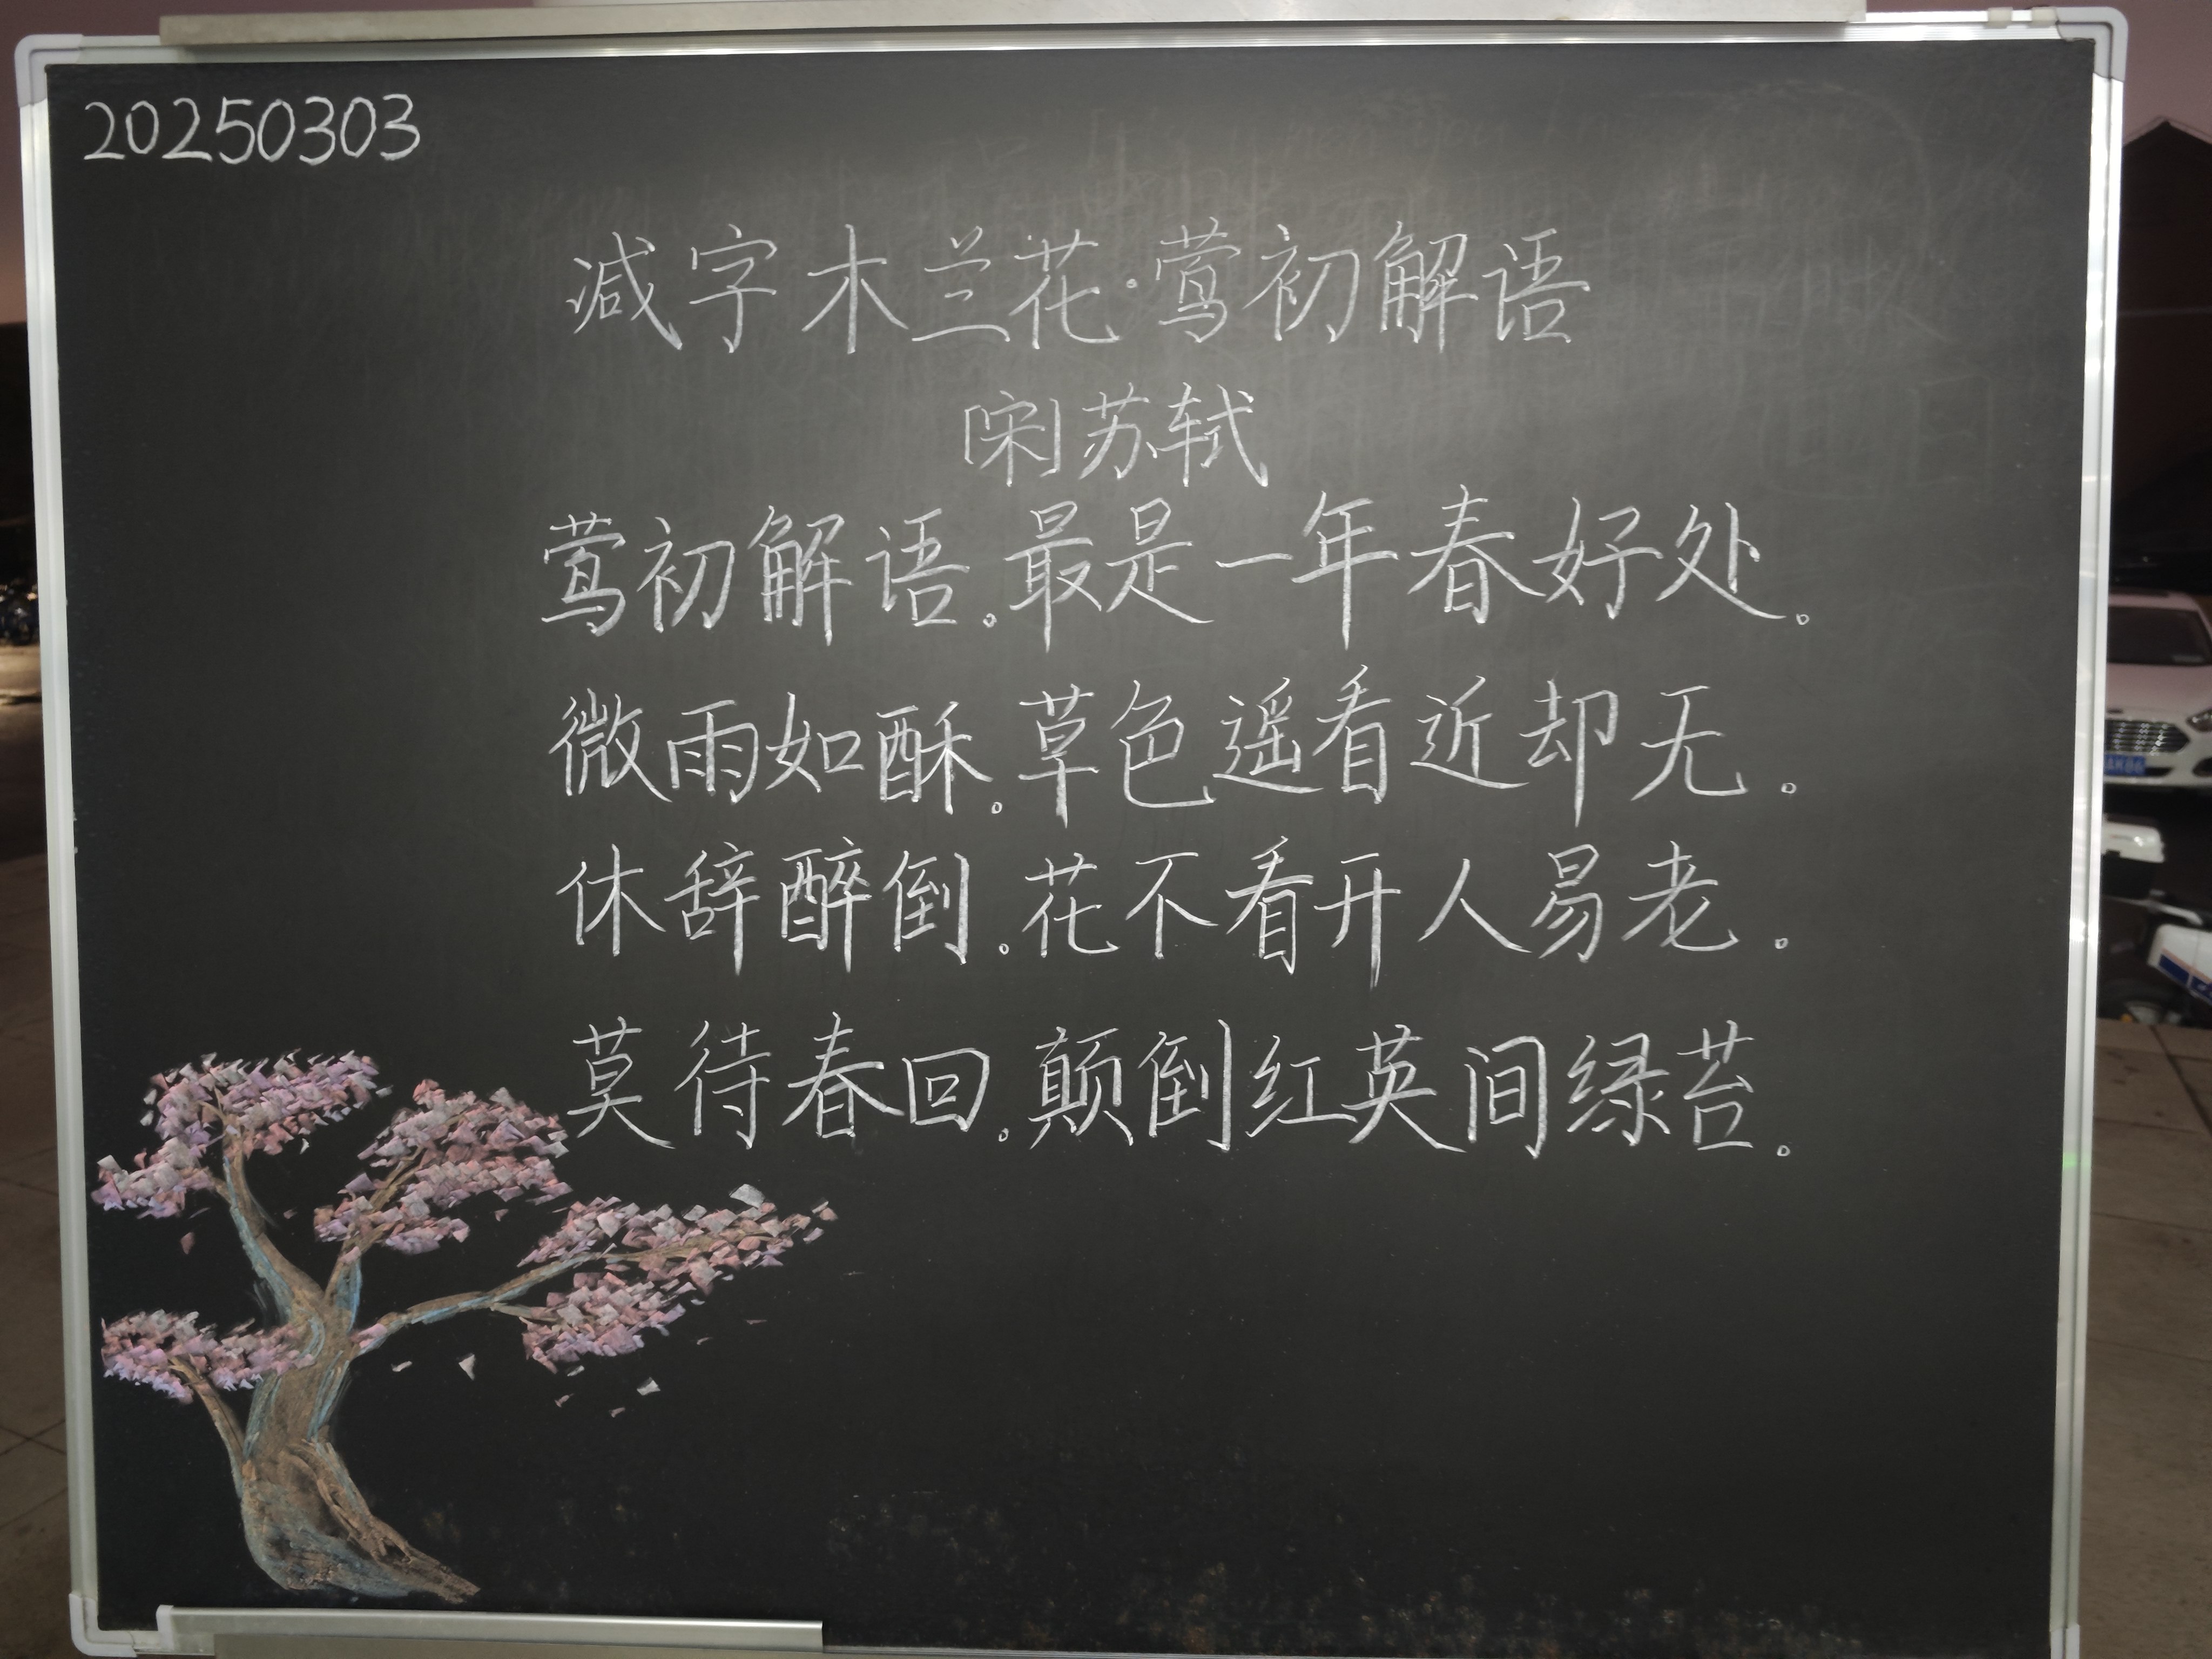 20250303
减字木兰花·莺初解语
[宋]苏轼
莺初解语。最是一年春好处。
微雨如酥。草色遥看近却无。
休辞醉倒。花不看开人易老。
莫待春回。颠倒红英间绿苔。